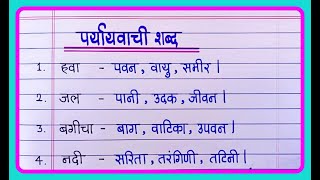 पर्यायवाची शब्द
1. हवा - पवन, वायु, समीर।
2. जल - पानी, उदक, जीवन।
3. बगीचा - बाग, वाटिका, उपवन।
4. नदी - सरिता, तरंगिणी, तटिनी।